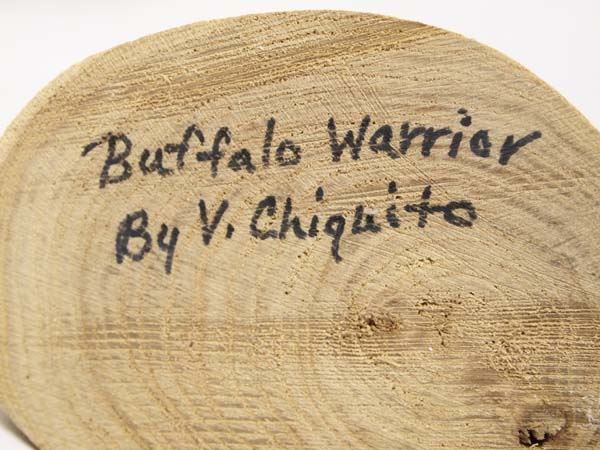 Buffalo Warrior
By V. Chiquito